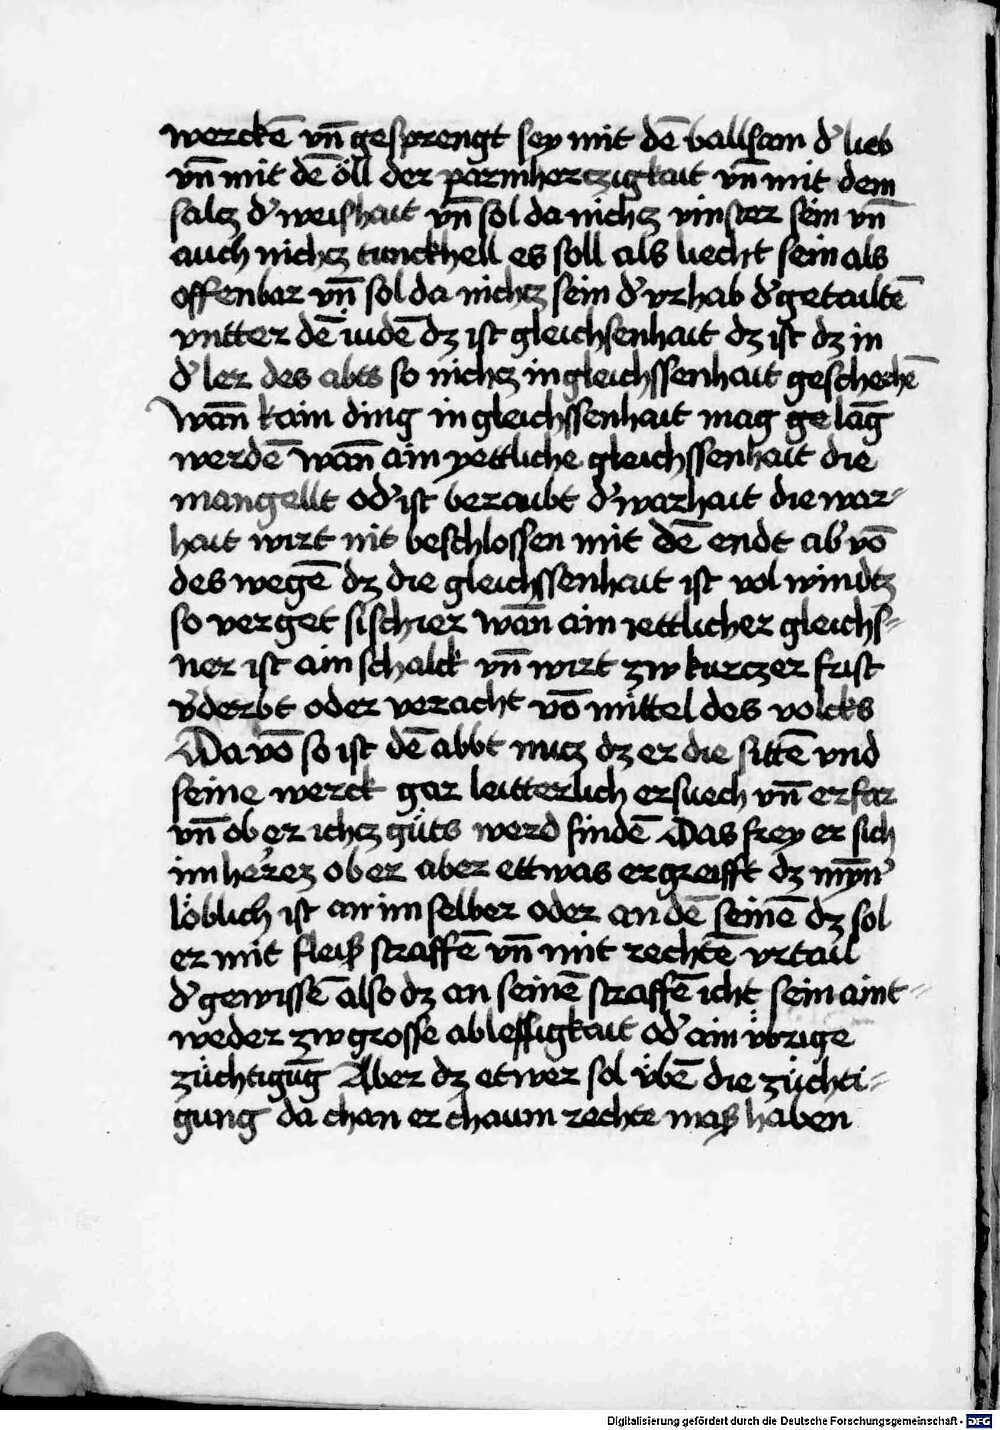 werckē vn̄ gesprengt sey mit dē ballsam d' lieb
vn̄ mit dē öll der parmherczigkait vn̄ mit dem
salcz d' weishait vn̄ sol da nichcz vinster sein vn̄
auch nichcz tunckhell es soll als liecht sein als
offenbar vn̄ sol da nichcz sein d' vrhab d' getailtē
vntter dē iudē dz ist gleichsenhait dz ist dz in
d' ler des abts so nichcz in gleichssenhait geschechē
wān kain ding in gleichssenhait mag ge lāg
werdē wān ain yettliche gleichssenhait die
mangellt od' ist beraubt d' warhait die war-
hait wirt nit beschlossen mit dē endt ab' vō
des wegē dz die gleichssenhait ist vol windtz
so verget si schier wān ain iettlicher gleichs-
ner ist ain schalck vn̄ wirt zw kurczer frist
v'derbt oder veracht vō mittel des volcks
Da vō so ist dē abbt nucz dz er die sittē vnd
seine werck gar leitterlich ersuech vn̄ erfar
vn̄ ob er ichcz güts werd findē Das frey er sich
im herczen ob er aber ettwas ergreifft dz mȳn'
löblich ist an im selber oder an dē seinē dz sol
er mit fleiß straffē vn̄ mit rechtē vrtail
d' gewissē also dz an seinē straffē icht sein aint-
weder zw grosse ablessigkait od' ain v̈brige
züchtigūg Aber dz etwer sol v̈bē die züchti-
gung da chan er chaum rechte maß haben
Digitalisierung gefördert durch die Deutsche Forschungsgemeinschaft - DFG